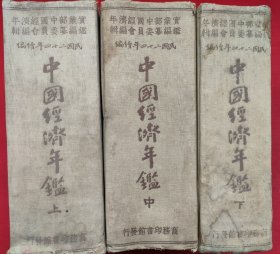 實業部中國經濟年
鑑編纂委員會編輯
民國二十四年續編
中國經濟年鑑
上
商務印書館發行
實業部中國經濟年
鑑編纂委員會編輯
民國二十四年續編
中國經濟年鑑
中
商務印書館發行
實業部中國經濟年
鑑編纂委員會編輯
民國二十四年續編
中國經濟年鑑
下
商務印書館發行